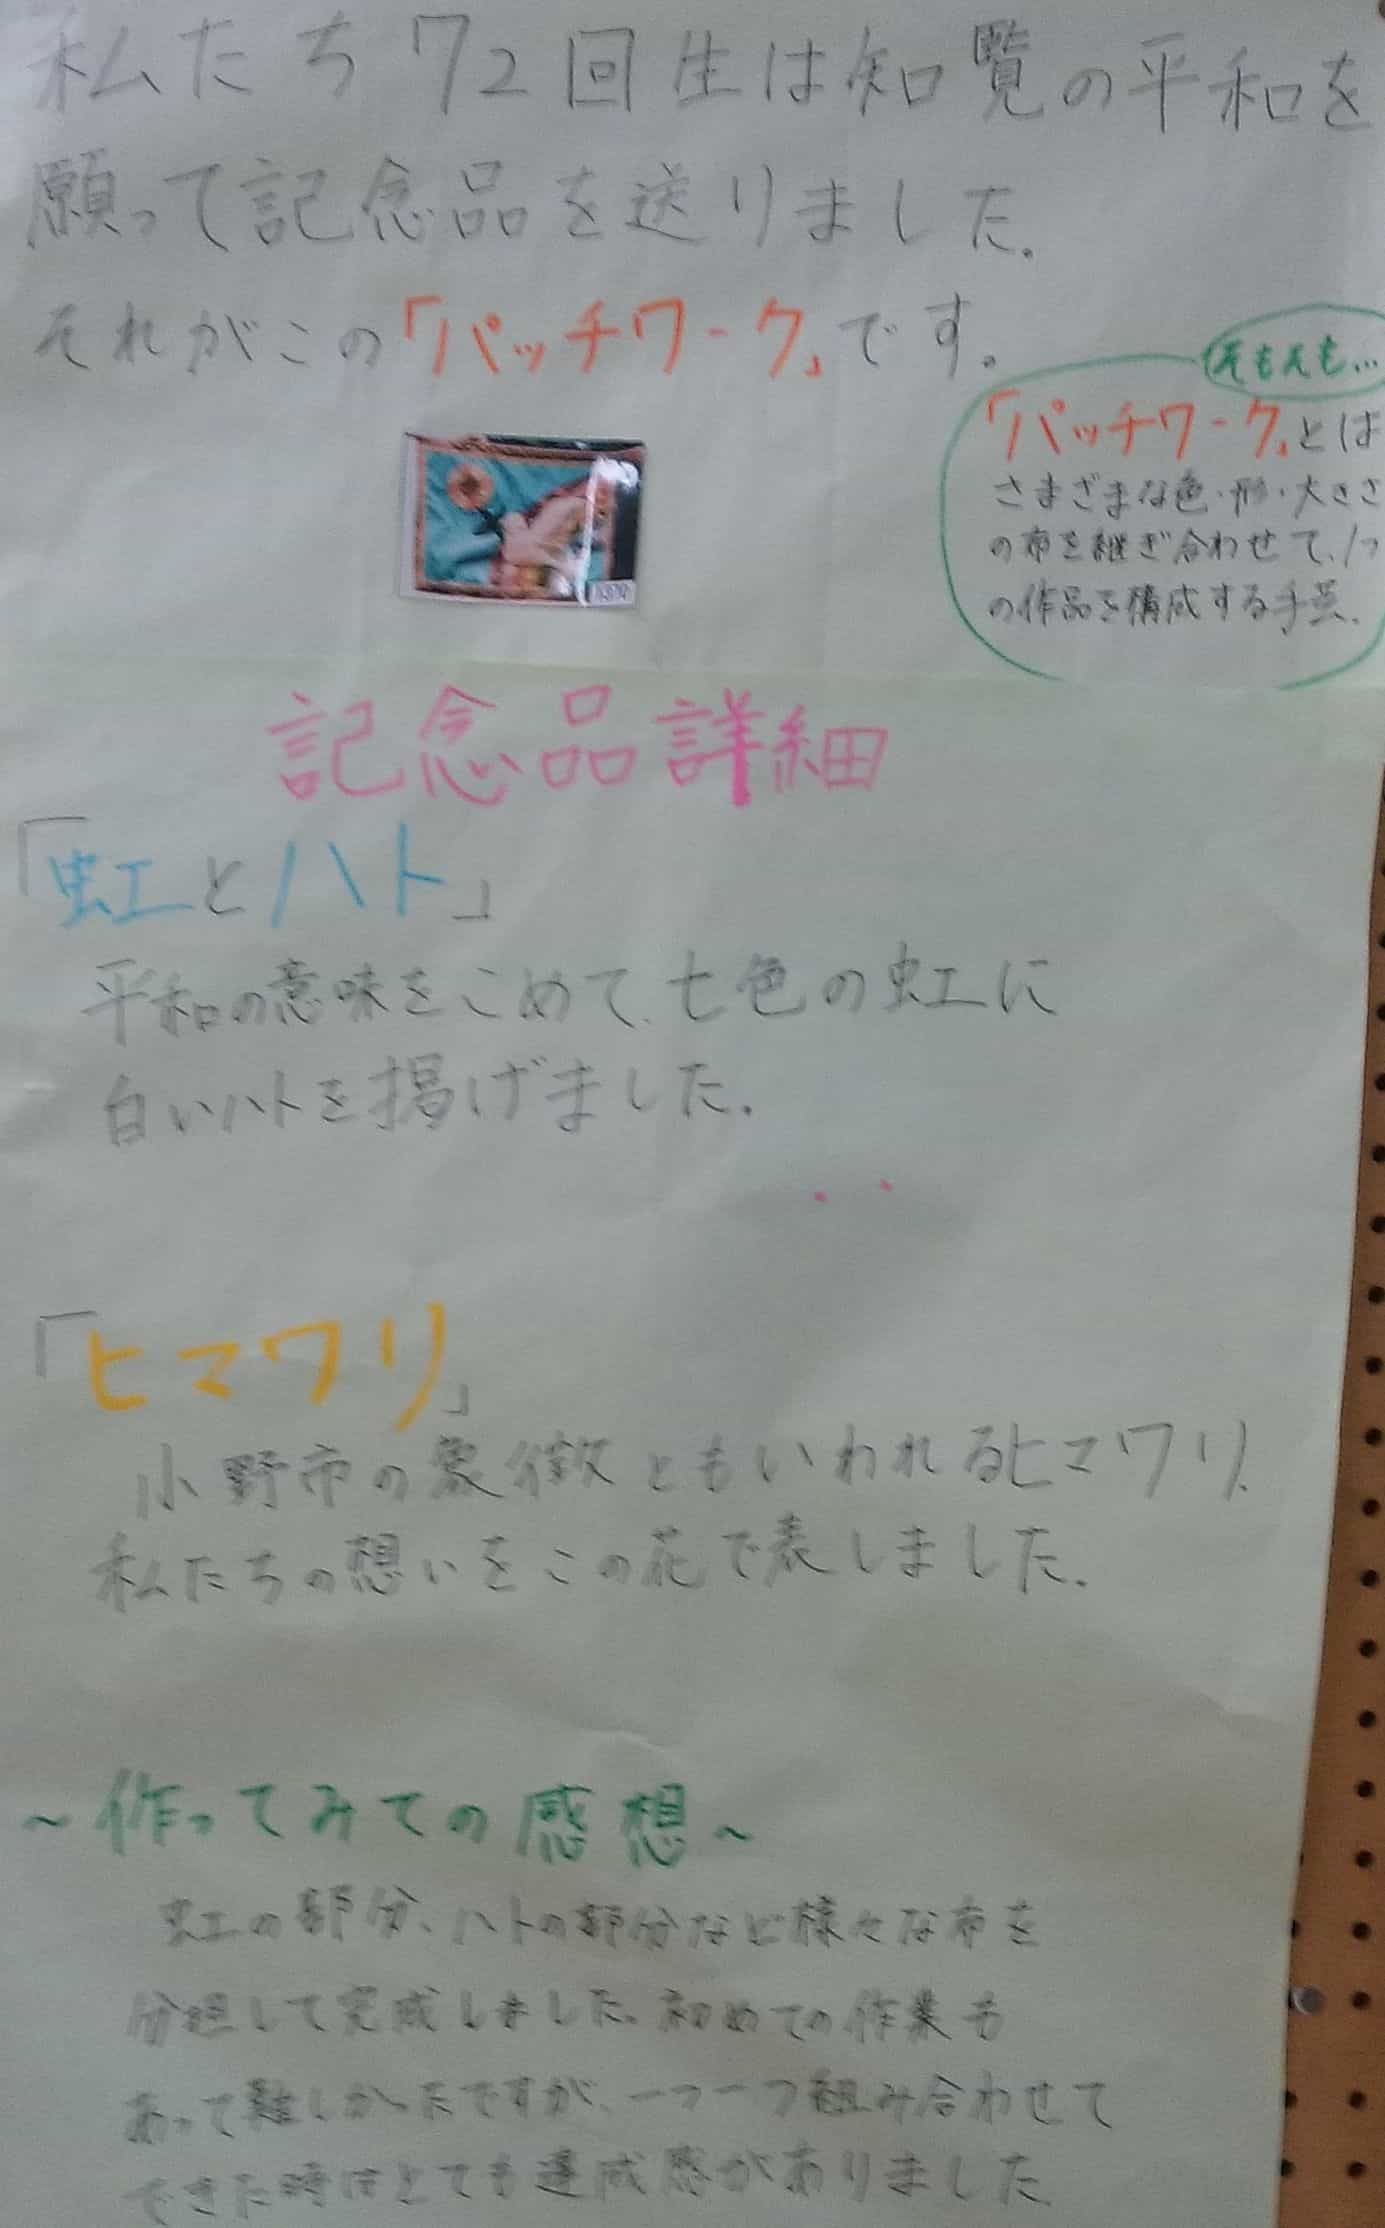 私たち72回生は知覧の平和を
願って記念品を送りました.
それがこの「パッチワーク」です。
そもそも...
「パッチワーク」とは
さまざまな色・形・大きさ
の布を継ぎ合わせて、1つ
の作品を構成する手芸.
記念品詳細
「虹とハト」
平和の意味をこめて、七色の虹に
白いハトを掲げました.
「ヒマワリ」
小野市の象徴ともいわれるヒマワリ.
私たちの想いをこの花で表しました.
~作ってみての感想~
虹の部分、ハトの部分など様々な布を
分担して完成しました.初めての作業も
あって難しかったですが、一つ一つ組み合わせて
できた時はとても達成感がありました